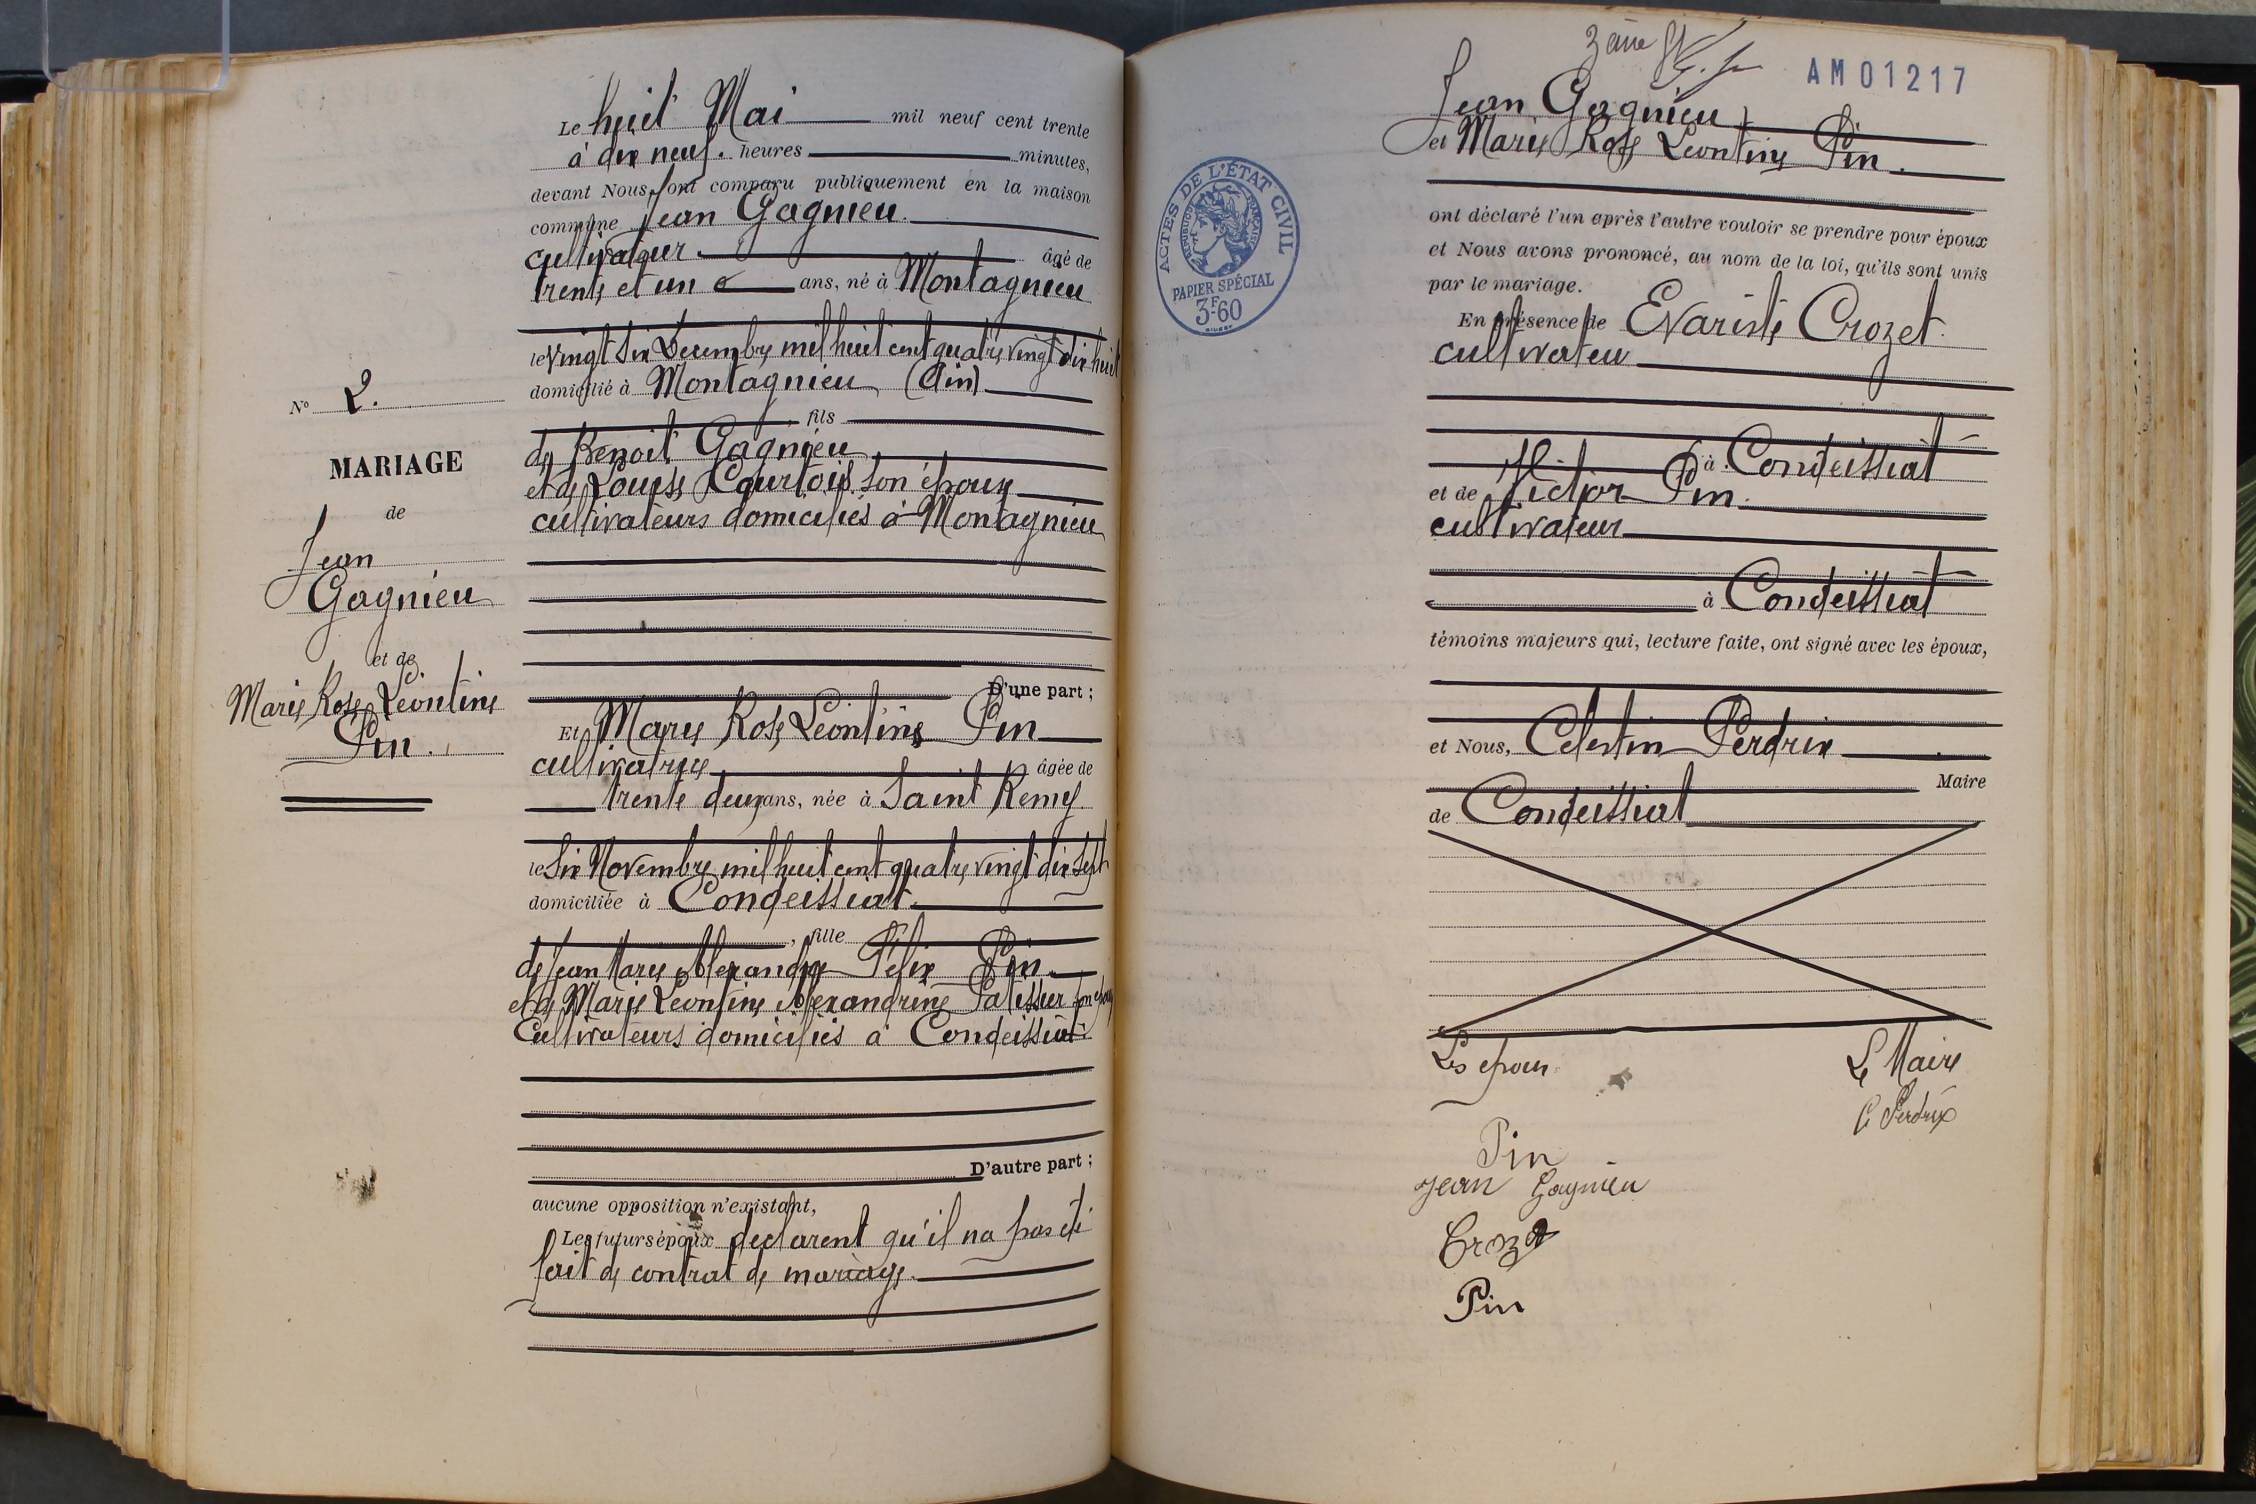 N° 2.
MARIAGE
de
Jean
Gagnieu
et de
Marie Rose Léontine
Pin.
Le huit Mai mil neuf cent trente
à dix neuf heures minutes,
devant Nous, ont comparu publiquement en la maison
commune Jean Gagnieu
cultivateur âgé de
trente et un ans, né à Montagnieu
le vingt six Decembre mil huit cent quatre vingt dix huit
domicilié à Montagnieu (Ain)
fils
de Benoit Gagnieu
et de Louise Courtois son épouse
cultivateurs domiciliés à Montagnieu
D'une part ;
Et Marie Rose Léontine Pin
cultivatrice âgée de
trente deux ans, née à Saint Remy
le six Novembre mil huit cent quatre vingt dix sept
domiciliée à Condeissiat.
, fille
de Jean Marie Alexandre Félix Pin
et de Marie Leontine Alexandrine Patissier son épouse
Cultivateurs domiciliés à Condeissiat
D'autre part ;
aucune opposition n'existant,
Les futurs époux declarent qu'il na pas été
fait de contrat de mariage.
3ème
AM01217
Jean Gagnieu
et Marie Rose Leontine Pin.
ACTES DE L'ÉTAT CIVIL
RÉPUBLIQUE FRANÇAISE
PAPIER SPÉCIAL
3F.60
ont déclaré l'un après l'autre vouloir se prendre pour époux
et Nous avons prononcé, au nom de la loi, qu'ils sont unis
par le mariage.
En présence de Evariste Crozet
cultivateur
à Condeissiat
et de Victor Pin.
cultivateur
à Condeissiat
témoins majeurs qui, lecture faite, ont signé avec les époux,
et Nous, Celestin Perdrix
Maire
de Condeissiat
Les epoux
Le Maire
C Perdrix
Pin
Jean Gagnieu
Crozet
Pin